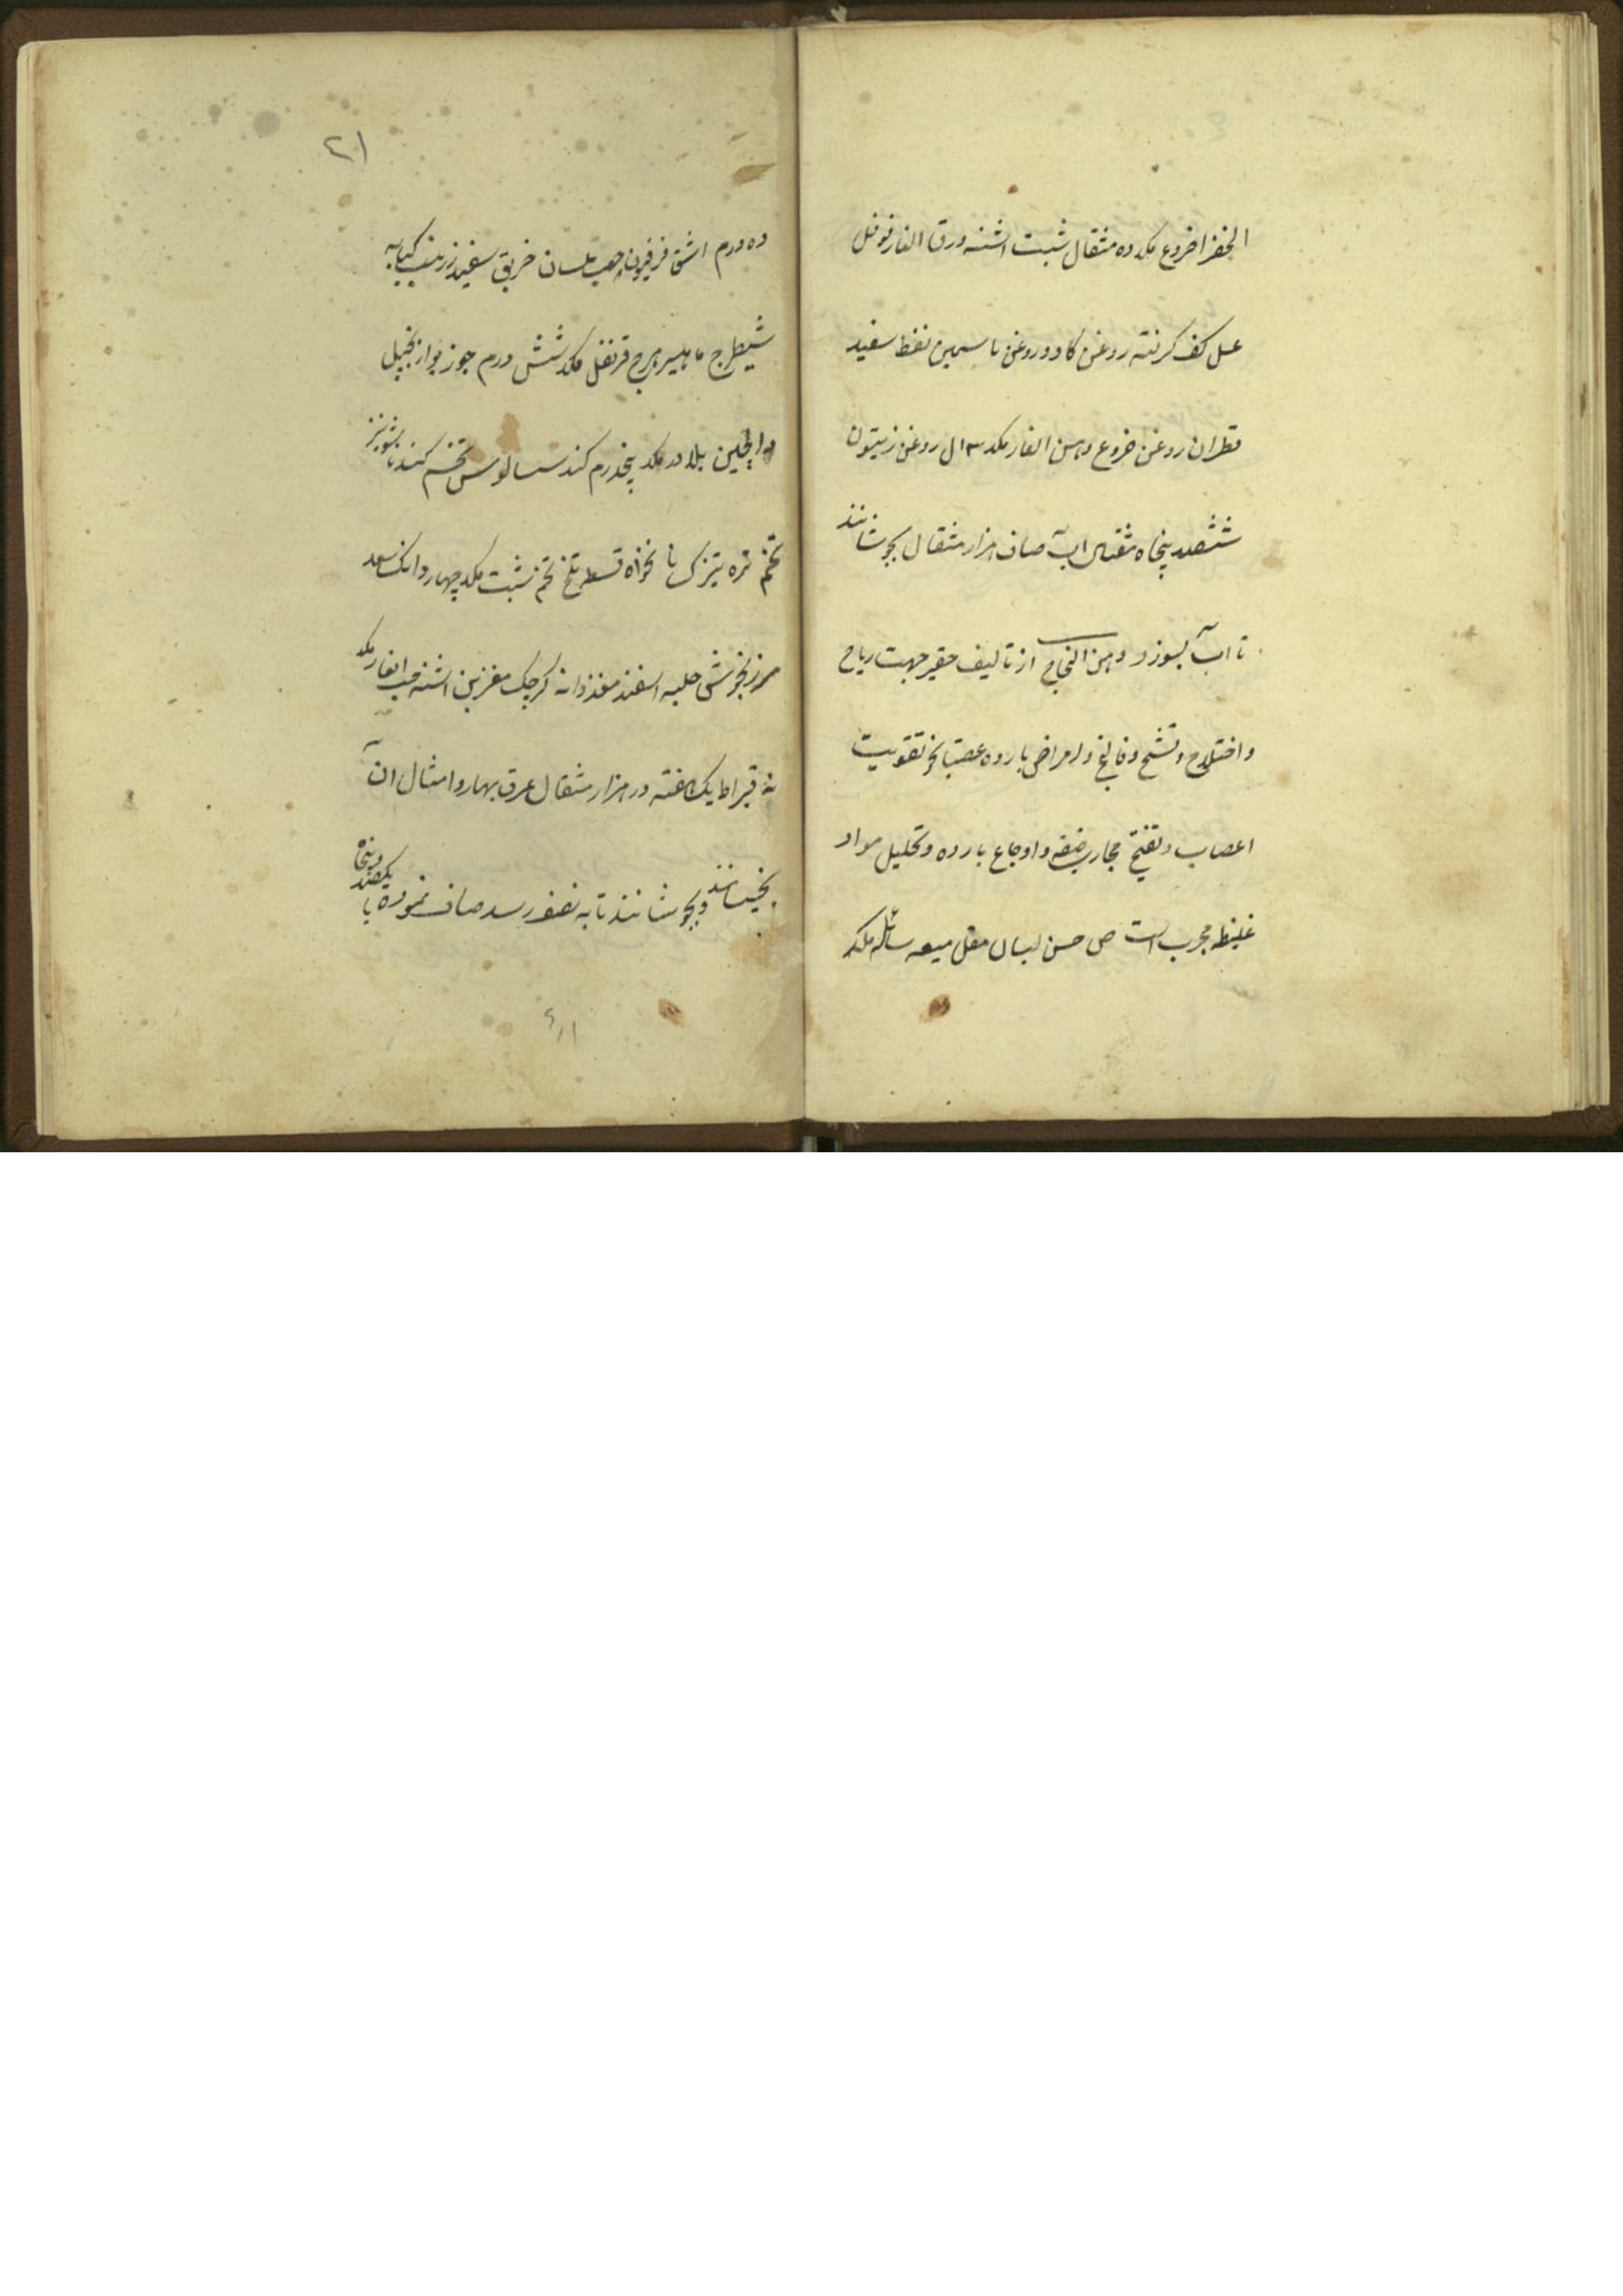 الخضرا خروع یکد ده مثقال شبت اشنه ورق الغار فوفل
عسل کف کرفته روغن کاو و روغن یاسمین نفط سفید
قطران روغن خروع دهن الغار یکد ۳ ال روغن زیتون
ششصد پنجاه مثقال اب صاف هزار مثقال بجوشانند
تا اب بسوزد دهن الفجاج از تالیف حقیر جهت ریاح
و اختلاج و تشنج و فالج و امراض بارده تقویت
اعصاب و تفتیح مجاری ضیقه و اوجاع بارده و تحلیل مواد
غلیظه مجرب است ص حسن لبان مقل میعه سائله یکد
۲۱
ده درم اشق فرفیون حب بلسان خربق سفید زرنب کبابه
شیطرج ماهیزهرج قرنفل یکد شش درم جوز بوا زنجبیل
دارچین بلادر یکد پنجدرم کندر سسالیوس تخم کندنا شونیز
تخم تره تیزک نانخواه قسط تلخ تخم شبت یکد چهار دانک سعد
مرزنجوش حلبه اسفند مغز دانه کرچک مغز بن اشنه حب الغار یکد
نه قیراط یک هفته در هزار مثقال عرق بهار و امثال آن
بخیسانند و بجوشانند تا به نصف رسد صاف نموده با
یکصد و پنجاه